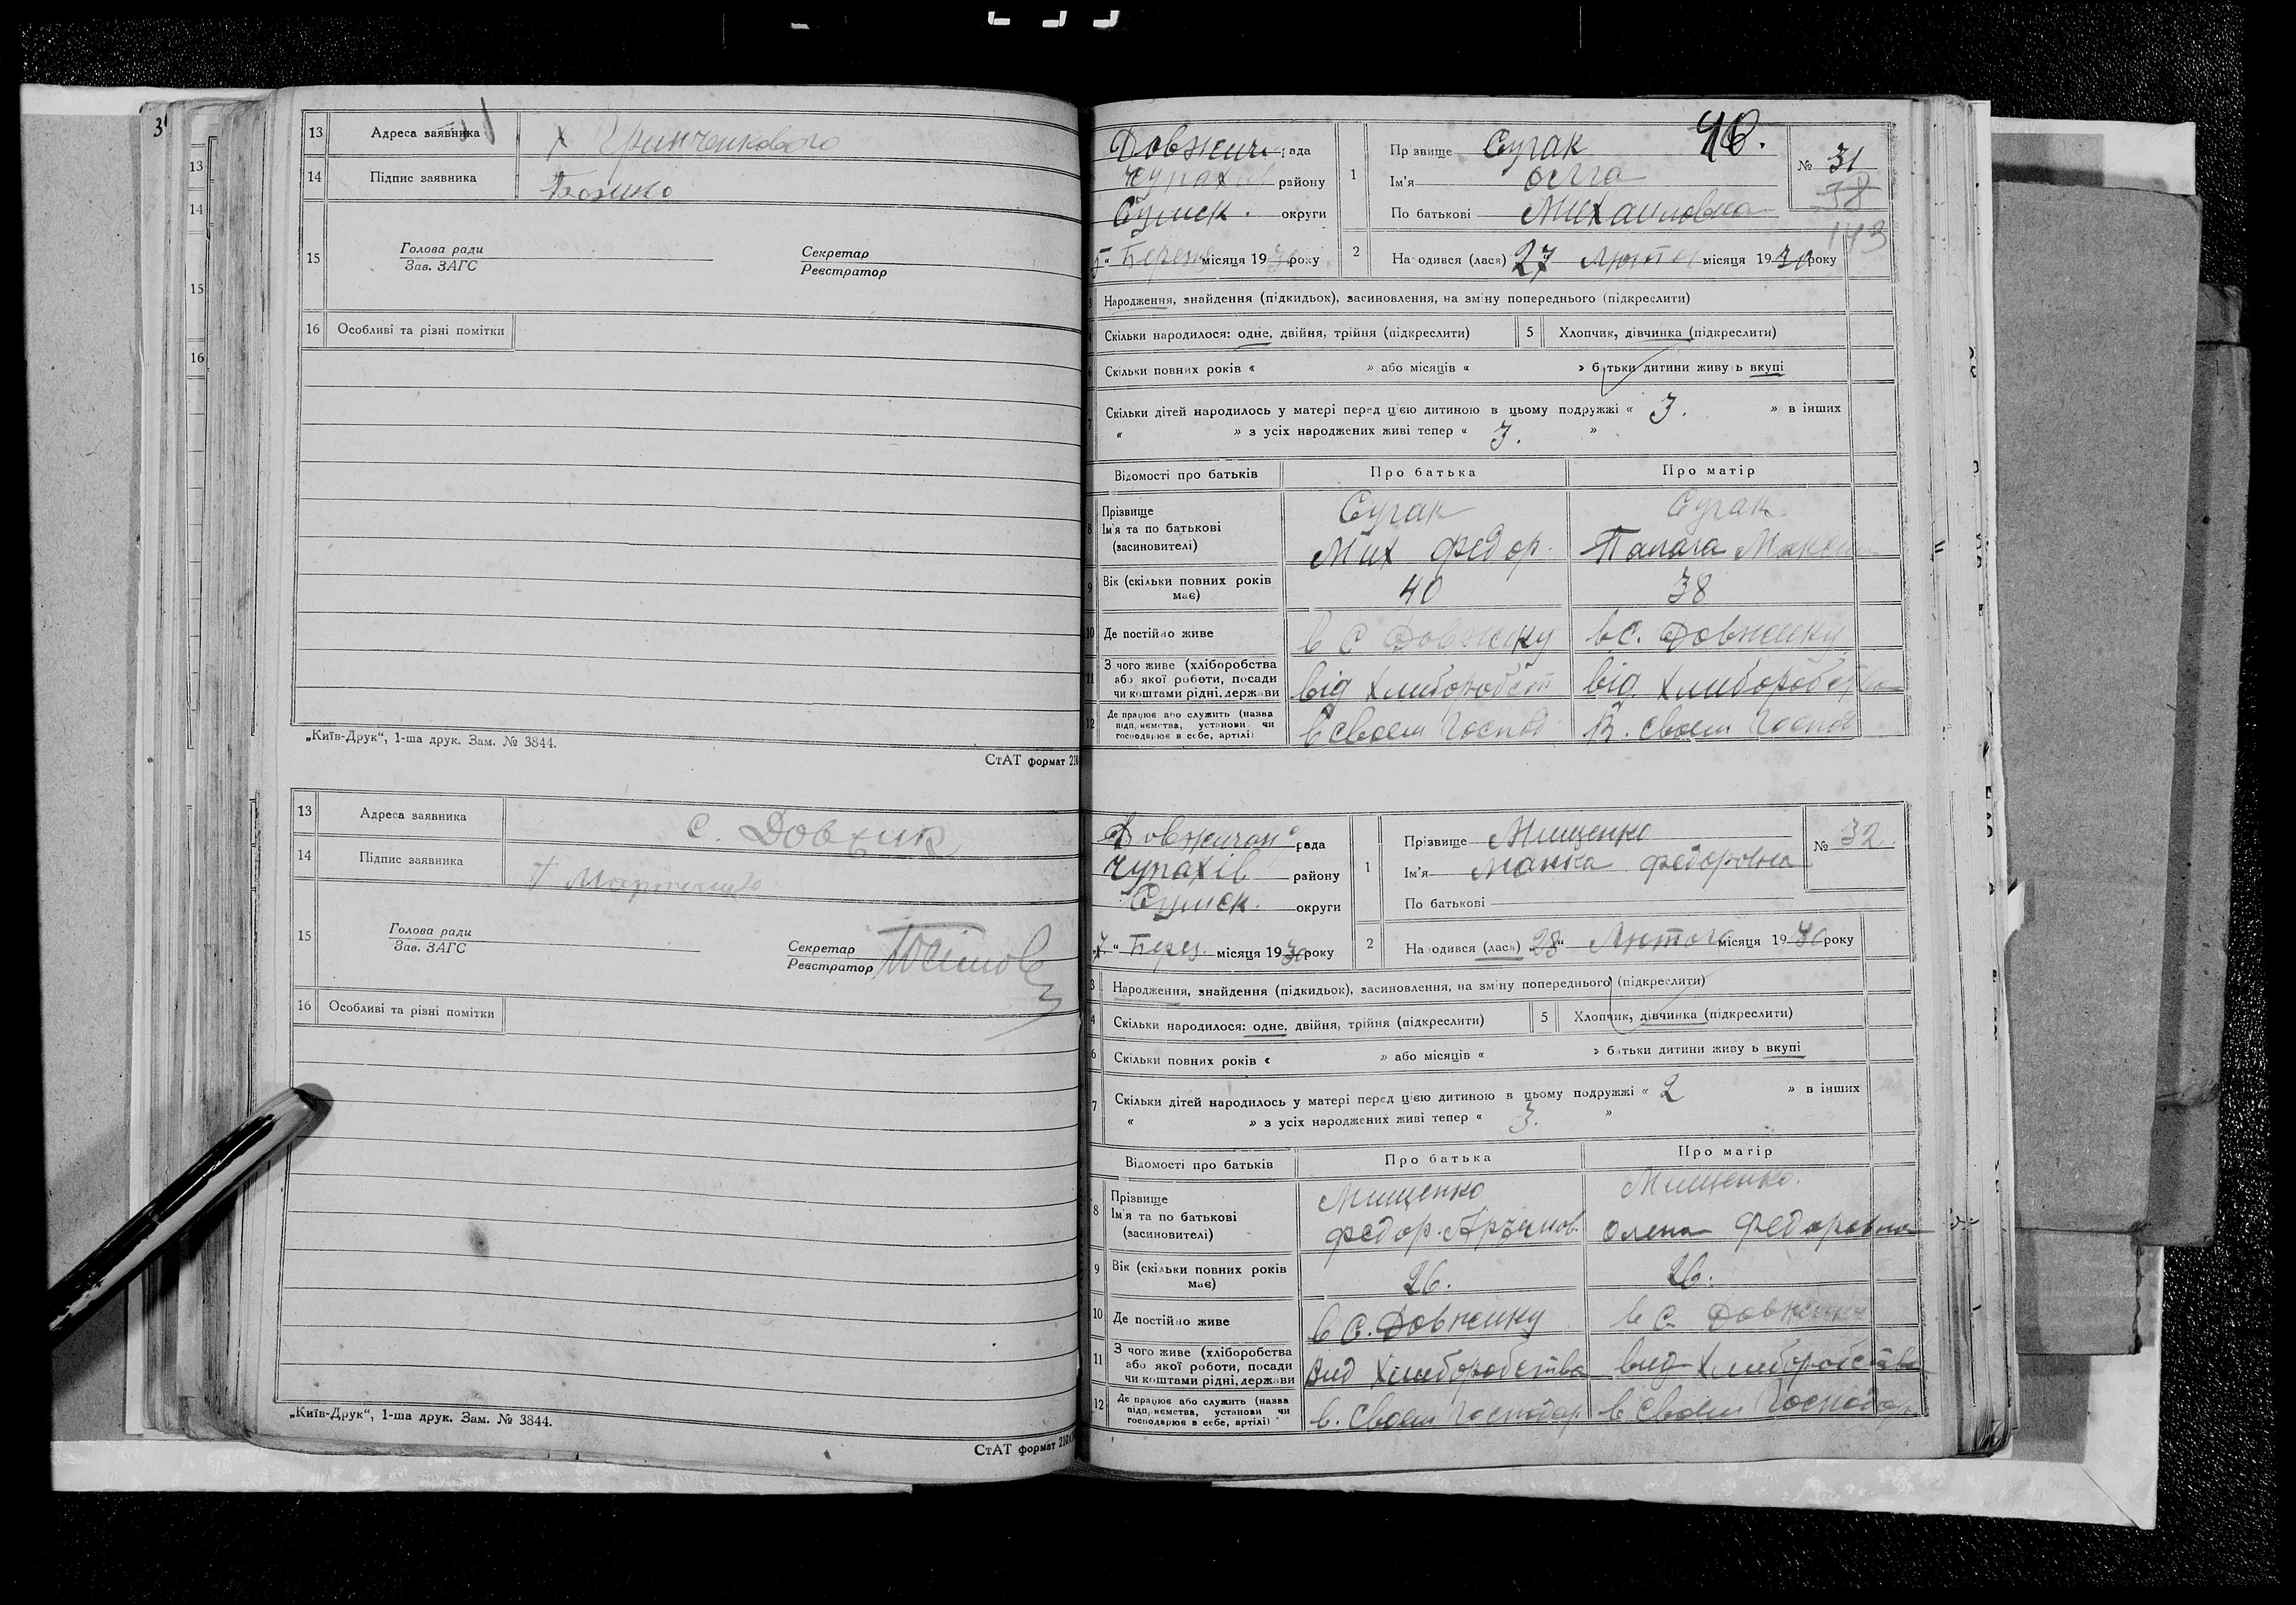 3
13
14
15
16
13 Адреса заявника х Гринченкового
14 Підпис заявника Божико
15 Голова ради
Зав. ЗАГС
Секретар
Реєстратор
16 Особливі та різні помітки
„Київ-Друк“, 1-ша друк. Зам. № 3844.
СтАТ формат 210
13 Адреса заявника с. Довжик
14 Підпис заявника
15 Голова ради
Зав. ЗАГС
Секретар
Реєстратор
16 Особливі та різні помітки
„Київ-Друк“, 1-ша друк. Зам. № 3844.
СтАТ формат 210
46.
Довжич рада
Чупахів району
Сумск. округи
Берез місяця 1930 року
1 Прізвище Сугак
Ім'я Олга
По батькові Михайловна
№ 31
38
143
2 Народився (лася) 27 Лютого місяця 1930 року
3 Народження, знайдення (підкидьок), засиновлення, на зміну попереднього (підкреслити)
4 Скільки народилося: одне, двійня, трійня (підкреслити) 5 Хлопчик, дівчинка (підкреслити)
6 Скільки повних років « » або місяців « » батьки дитини живуть вкупі
7 Скільки дітей народилось у матері перед цією дитиною в цьому подружжі « 3. » в інших
« » з усіх народжених живі тепер « 3. »
Відомості про батьків Про батька Про матір
8 Прізвище Сугак Сугак
Ім'я та по батькові
(засиновителі) Мих Федор.
9 Вік (скільки повних років має) 40 38
10 Де постійно живе в с Довжику в с. Довжику
11 З чого живе (хліборобства
або якої роботи, посади
чи коштами рідні, держави від Хлиборобст від Хлиборобства
12 Де працює або служить (назва
підприємства, установи чи
господарює в себе, артілі) в своем Господ В. своем Господ
Довжичан рада
Чупахів району
Сумск. округи
„7“ Берез. місяця 1930 року
1 Прізвище Мищенко
Ім'я Манка Федоровна
По батькові
№ 32.
2 Народився (лася) 28“ Лютого місяця 1930 року
3 Народження, знайдення (підкидьок), засиновлення, на зміну попереднього (підкреслити)
4 Скільки народилося: одне, двійня, трійня (підкреслити) 5 Хлопчик, дівчинка (підкреслити)
6 Скільки повних років « » або місяців « » батьки дитини живуть вкупі
7 Скільки дітей народилось у матері перед цією дитиною в цьому подружжі « 2 » в інших
« » з усіх народжених живі тепер « 3. »
Відомості про батьків Про батька Про матір
8 Прізвище Мищенко Мищенко.
Ім'я та по батькові
(засиновителі) Федор. Олена Федоровна
9 Вік (скільки повних років має) 26. 26.
10 Де постійно живе в с. Довжику в с. Довжику
11 З чого живе (хліборобства
або якої роботи, посади
чи коштами рідні, держави вид Хлиборобства вид Хлиборобства
12 Де працює або служить (назва
підприємства, установи чи
господарює в себе, артілі) в. своем Господар в своем Господар